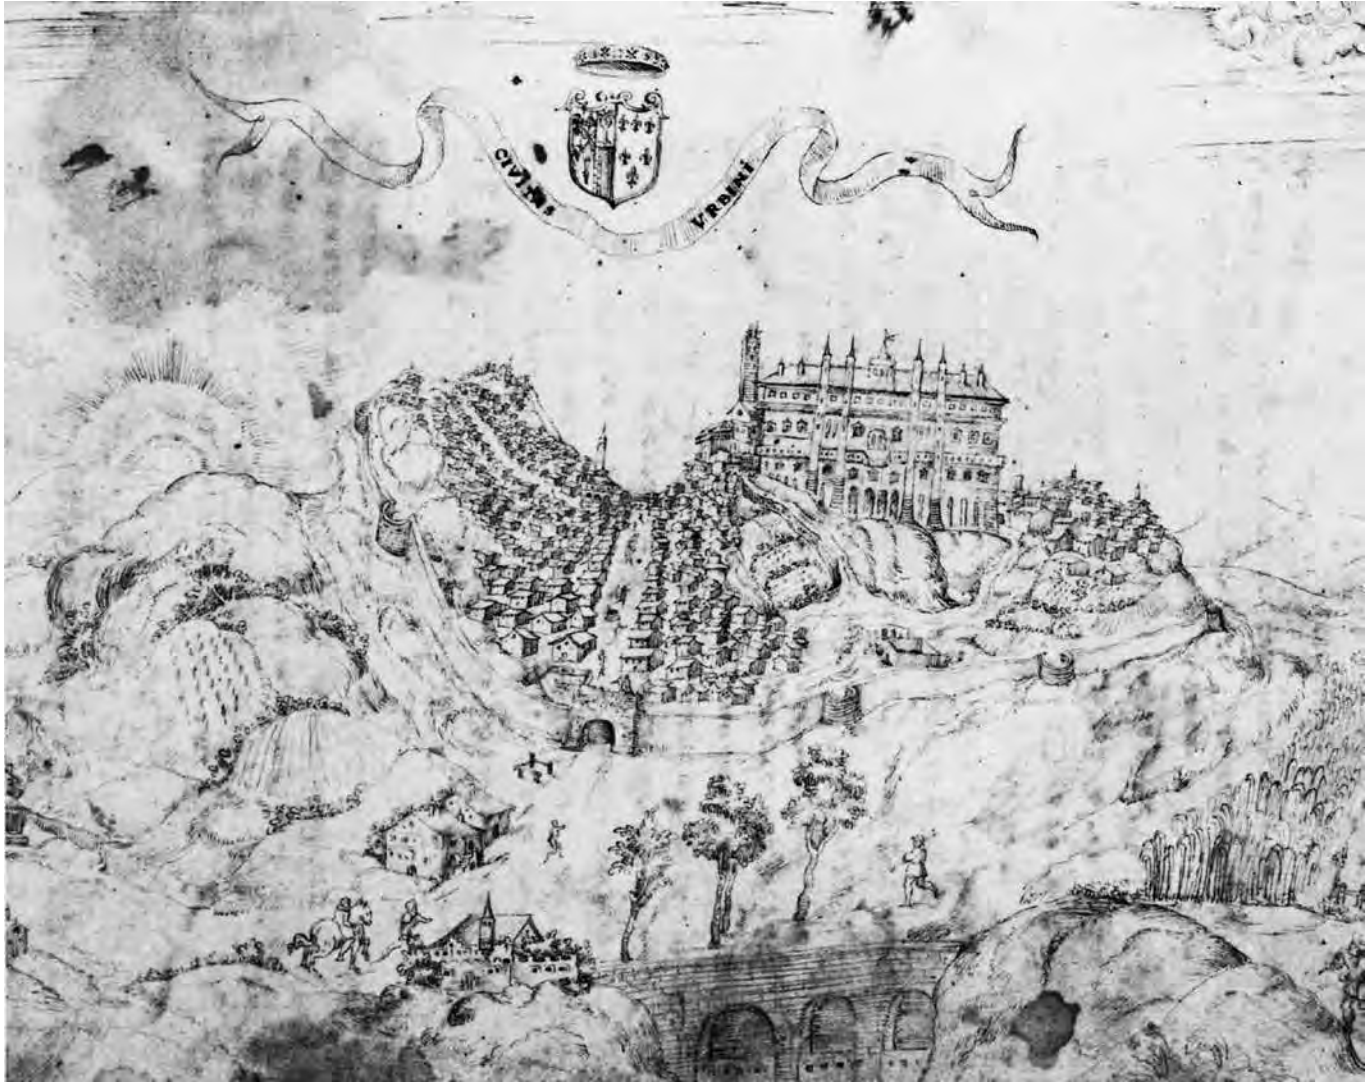 CIVITAS
VRBINI